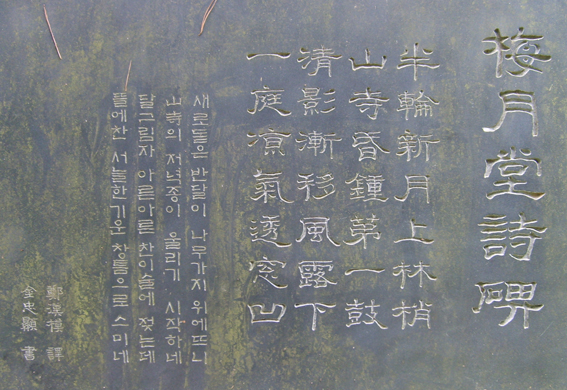 梅月堂詩碑
半輪新月上林梢
山寺昏鍾第一鼓
清影漸移風露下
一庭凉氣透窓凹
새로돋은 반달이 나무가지 위에뜨니
山寺의 저녁종이 울리기 시작하네
달그림자 아른아른 찬이슬에 젖는데
뜰에찬 서늘한기운 창틈으로 스미네
鄭漢模 譯
金忠顯 書